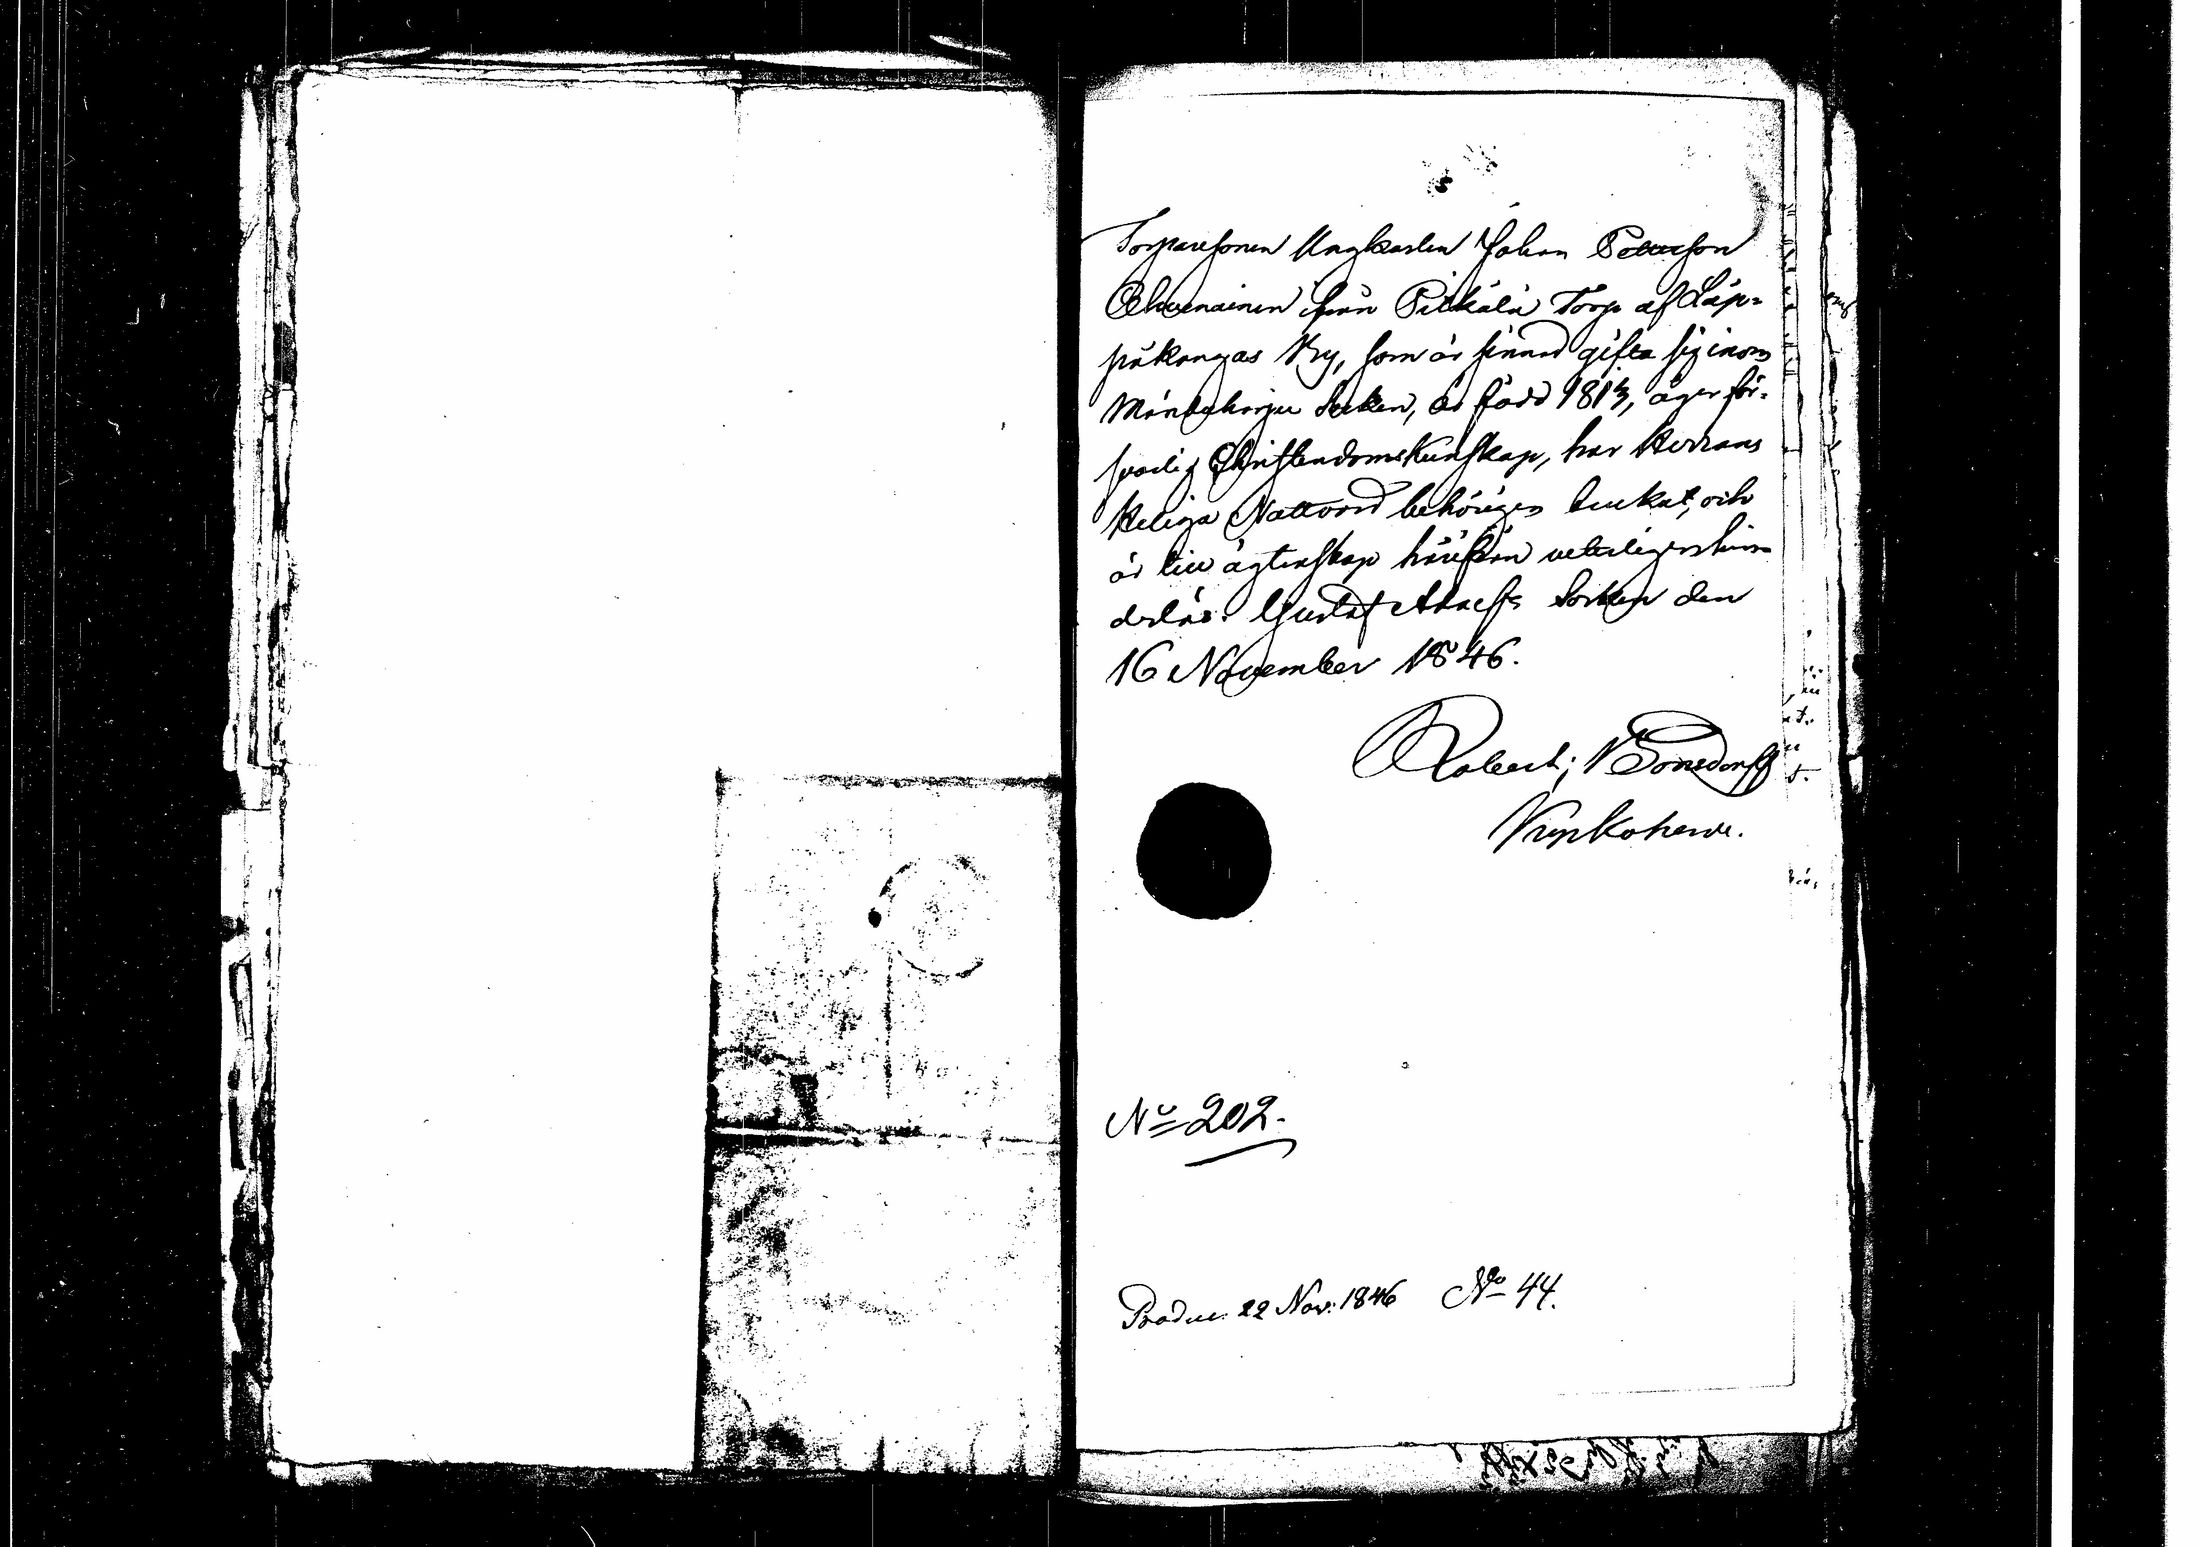 Torparesonen Ungkarlen Johan Petterson
Ahvenainen från Pitkälä Torp af Läp-
päkangas By, som är sinnad gifta sig inom
Mändyharju Socken, är född 1813, äger för-
svarlig Christendoms Kunskap, har Herrans
Heliga Nattvard behörigen brukat, och
är till ägtenskap härifrån veterligen hin-
derlös. Gustaf Adolfs Socken den
16 November 1846.
Robert; W Bonsdorff
Kyrkoherde.
No 202.
Produc. 22 Nov. 1846 No 44.